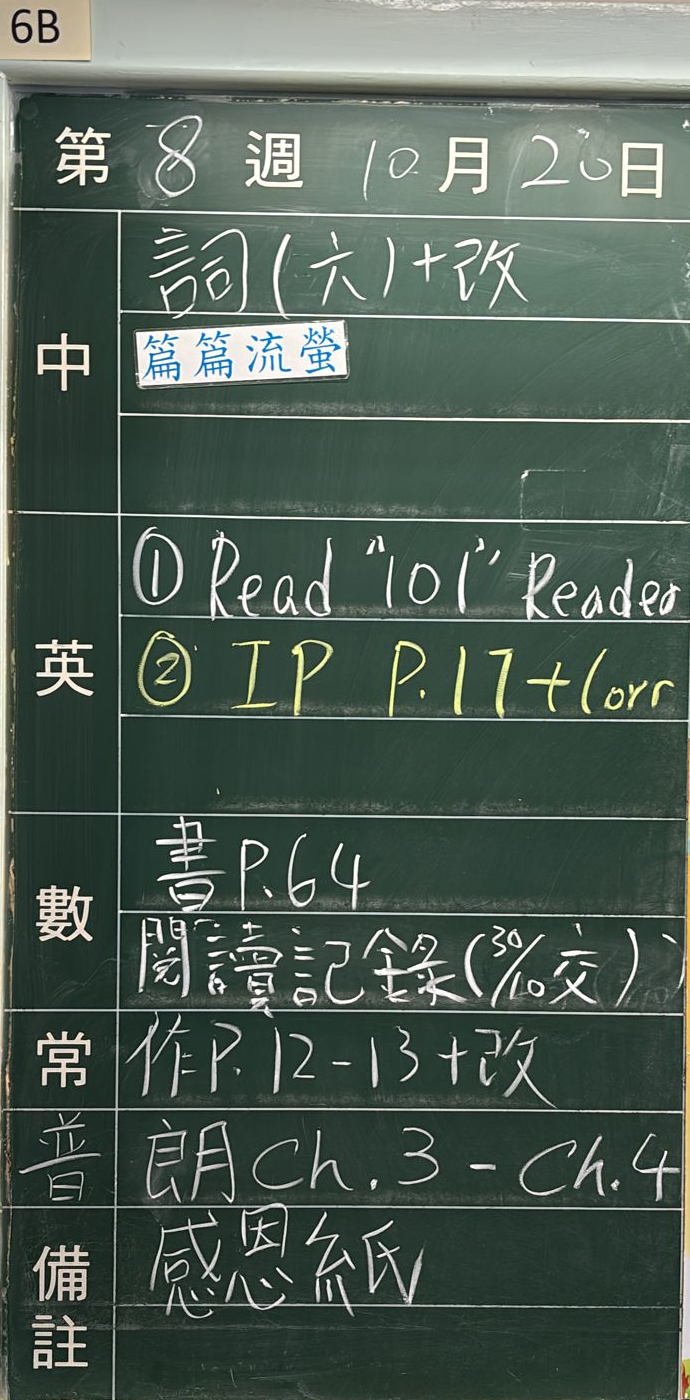 6B
第 8 週 10 月 20 日
中
詞(六)+改
篇篇流螢
英
① Read "101" Reader
② IP P.17+Corr
數
書P.64
閱讀記錄(30/10交)
常 作P.12-13+改
普 朗Ch.3-Ch.4
備註
感恩紙